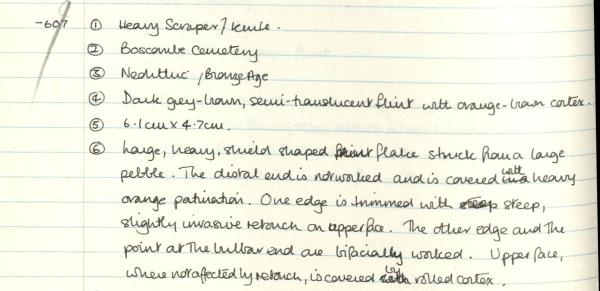 -607 ① Heavy Scraper / knife.
② Boscombe Cemetery
③ Neolithic / Bronze Age
④ Dark grey-brown, semi-translucent flint with orange-brown cortex.
⑤ 6.1cm x 4.7cm.
⑥ Large, heavy, shield shaped flake struck from a large
pebble. The distal end is not worked and is covered with heavy
orange patination. One edge is trimmed with steep,
slightly invasive retouch on upper face. The other edge and the
point at the bulbar end are bifacially worked. Upper face,
where not affected by retouch, is covered by rolled cortex.